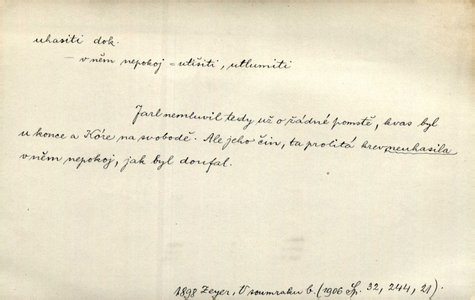 uhasiti dok.
– v něm nepokoj = utišiti, utlumiti
Jarl nemluvil tedy už o žádné pomstě, kvas byl
u konce a Kóre na svobodě. Ale jeho čin, ta prolitá krev neuhasila
v něm nepokoj, jak byl doufal.
1898 Zeyer, V soumraku b. (1906 Sp. 32, 244, 21).